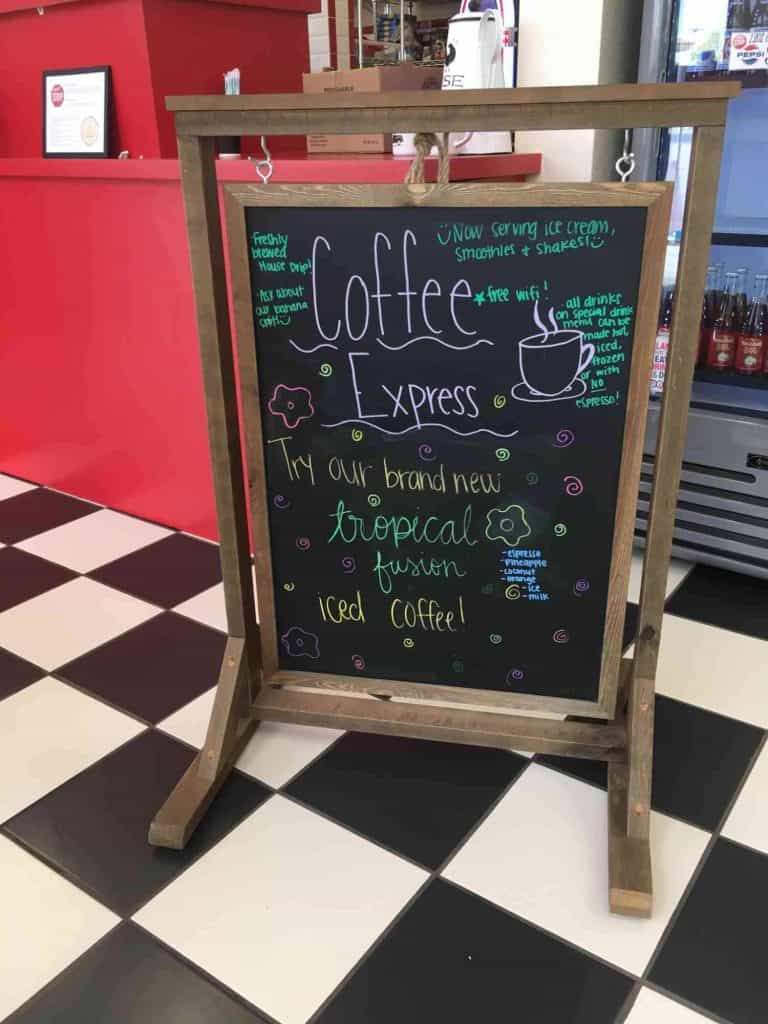 Freshly
brewed
House Drip!
·Ask about
our banana
Now serving ice cream,
Smoothies + Shakes!
Coffee
*free wifi!
Express
-all drinks
on special drink
menu can be
made hot,
iced,
frozen
or with
NO
espresso!
Try our brand new
tropical
fusion
iced coffee!
-espresso
-pineapple
-coconut
-orange
-ice
-milk
STOP
PEPSI